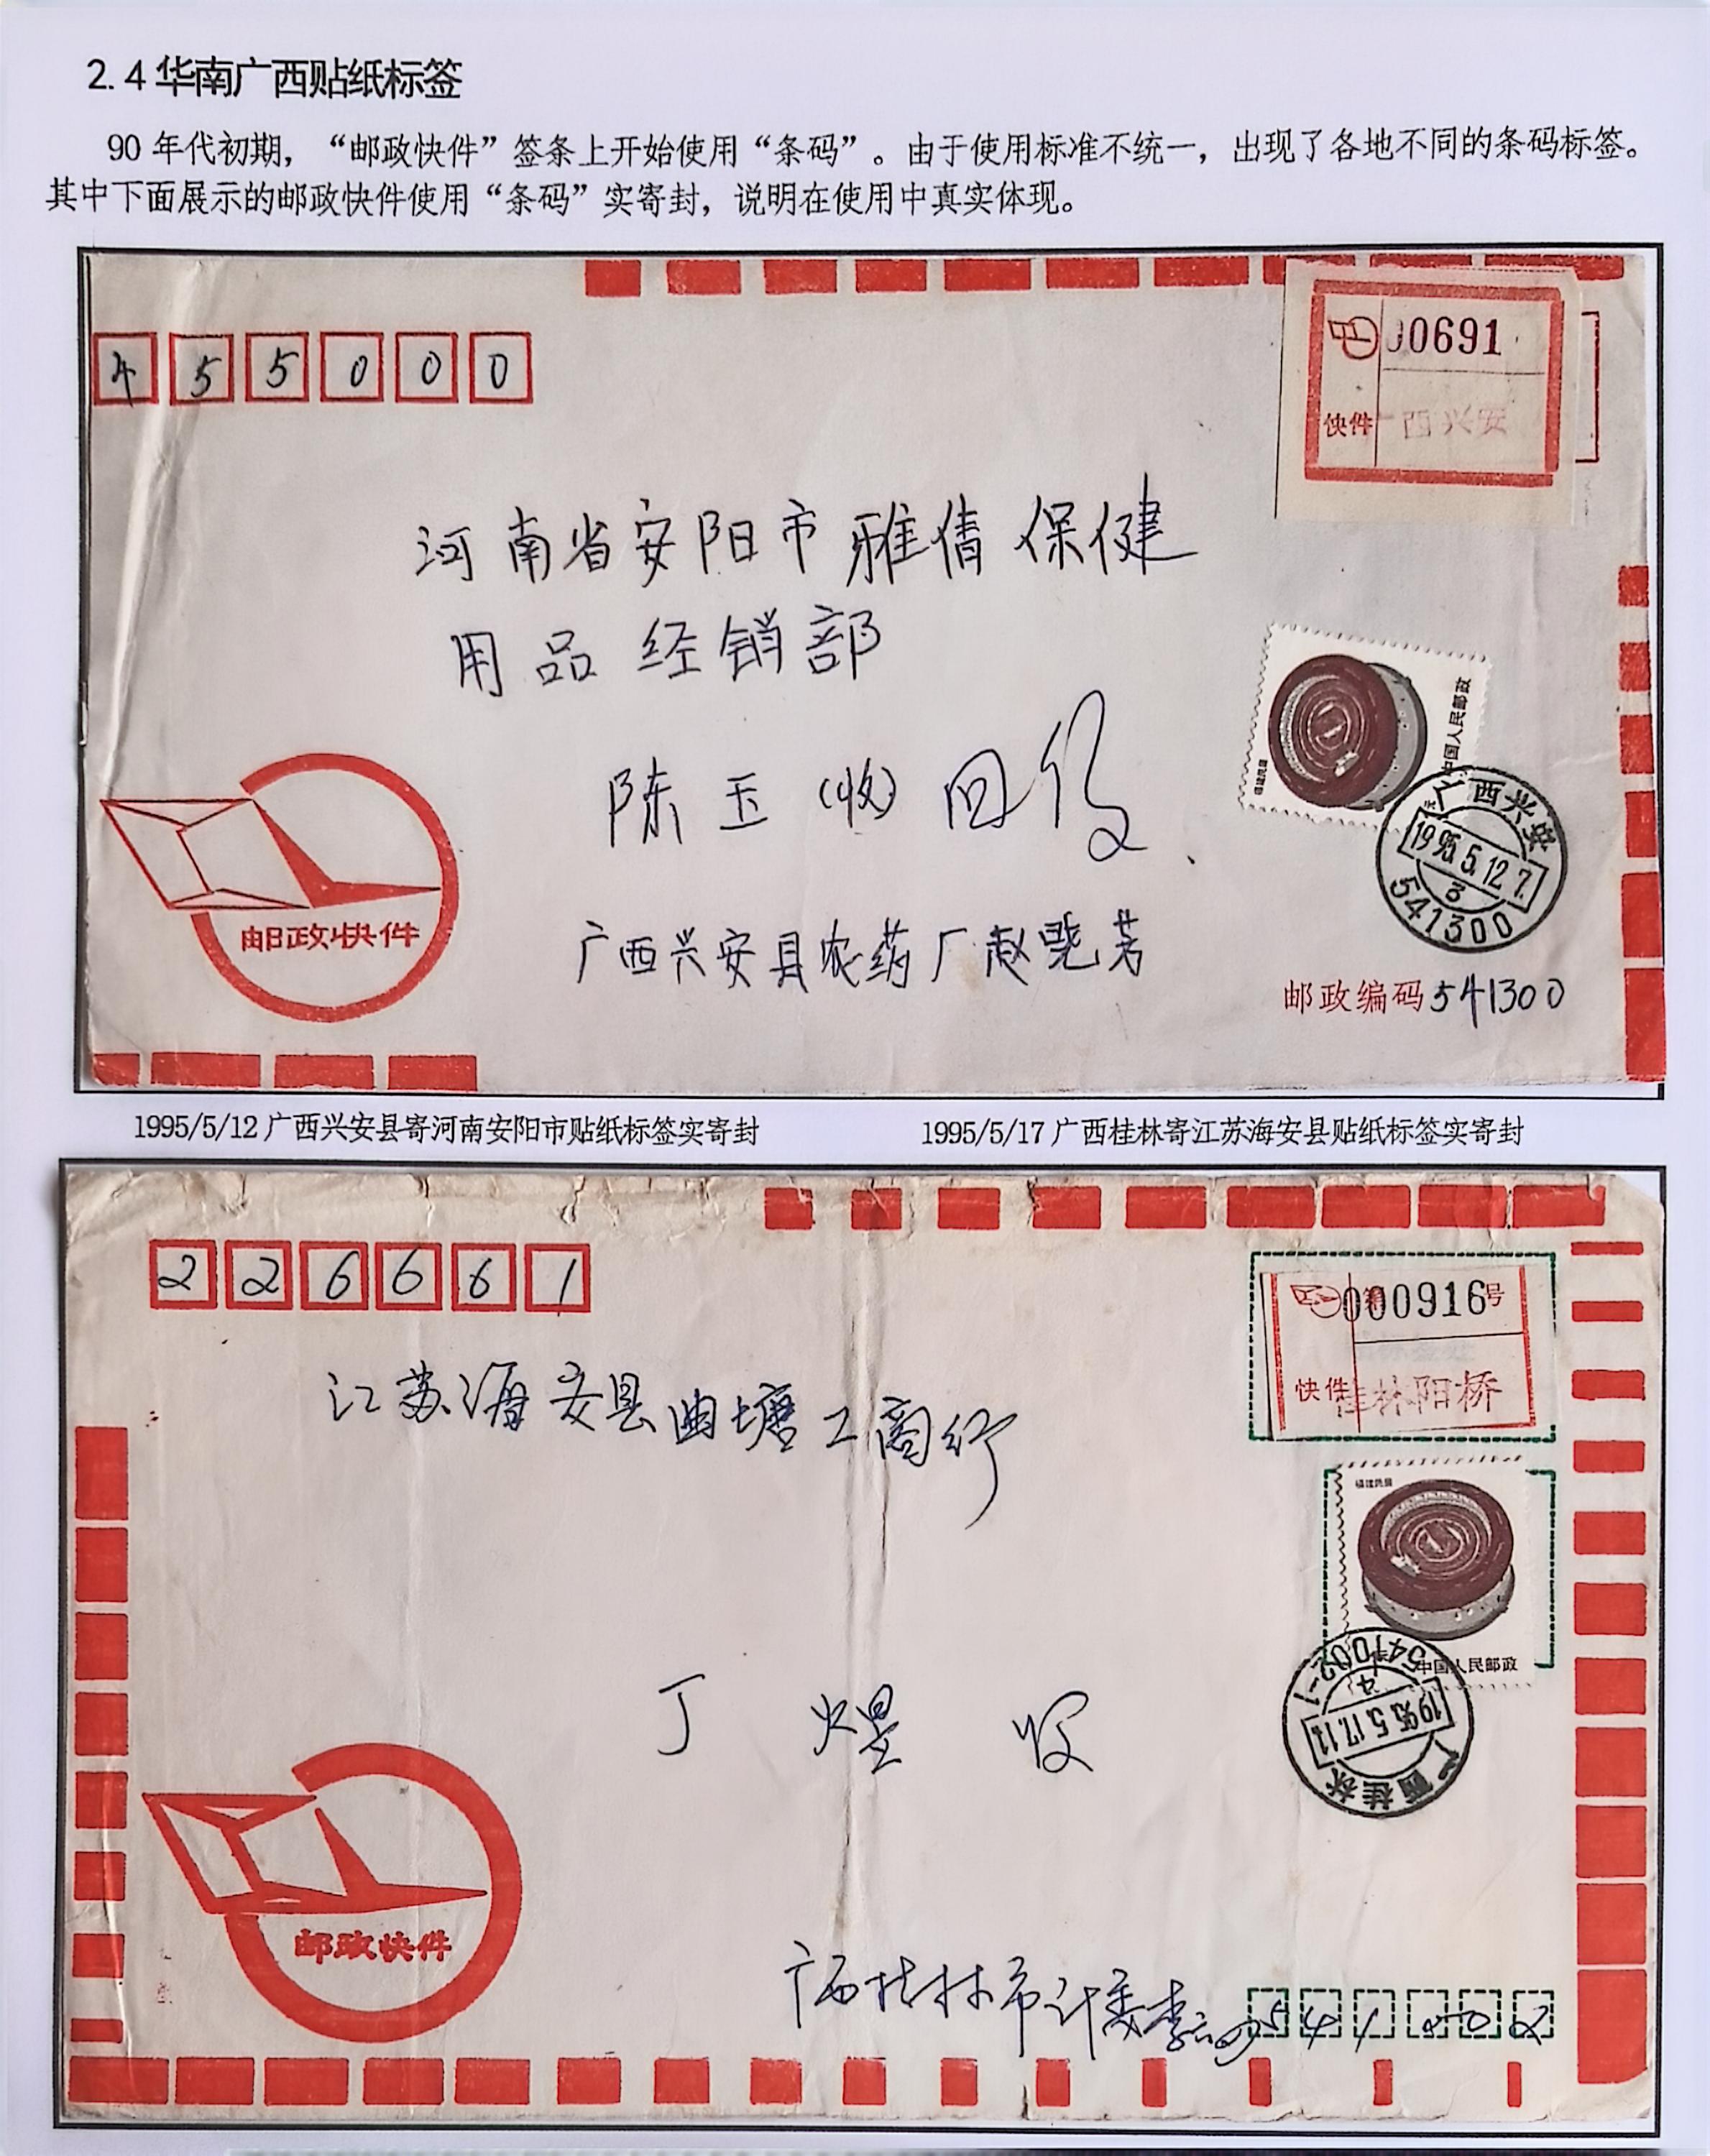 2.4华南广西贴纸标签
90年代初期，“邮政快件”签条上开始使用“条码”。由于使用标准不统一，出现了各地不同的条码标签。
其中下面展示的邮政快件使用“条码”实寄封，说明在使用中真实体现。
00691
快件
广西兴安
455000
河南省安阳市雅倩保健
用品经销部
陈玉(收)
福建民居
中国人民邮政
广西兴安
1995.5.12.7
3
541300
邮政快件
广西兴安县农药厂赵晓芳
邮政编码541300
1995/5/12广西兴安县寄河南安阳市贴纸标签实寄封
1995/5/17广西桂林寄江苏海安县贴纸标签实寄封
000916号
快件
桂林阳桥
226661
江苏海安县曲塘工商行
福建民居
中国人民邮政
541002-1
1995.5.17.11
广西桂林
丁煜 收
邮政快件
广西桂林市计委李
541002